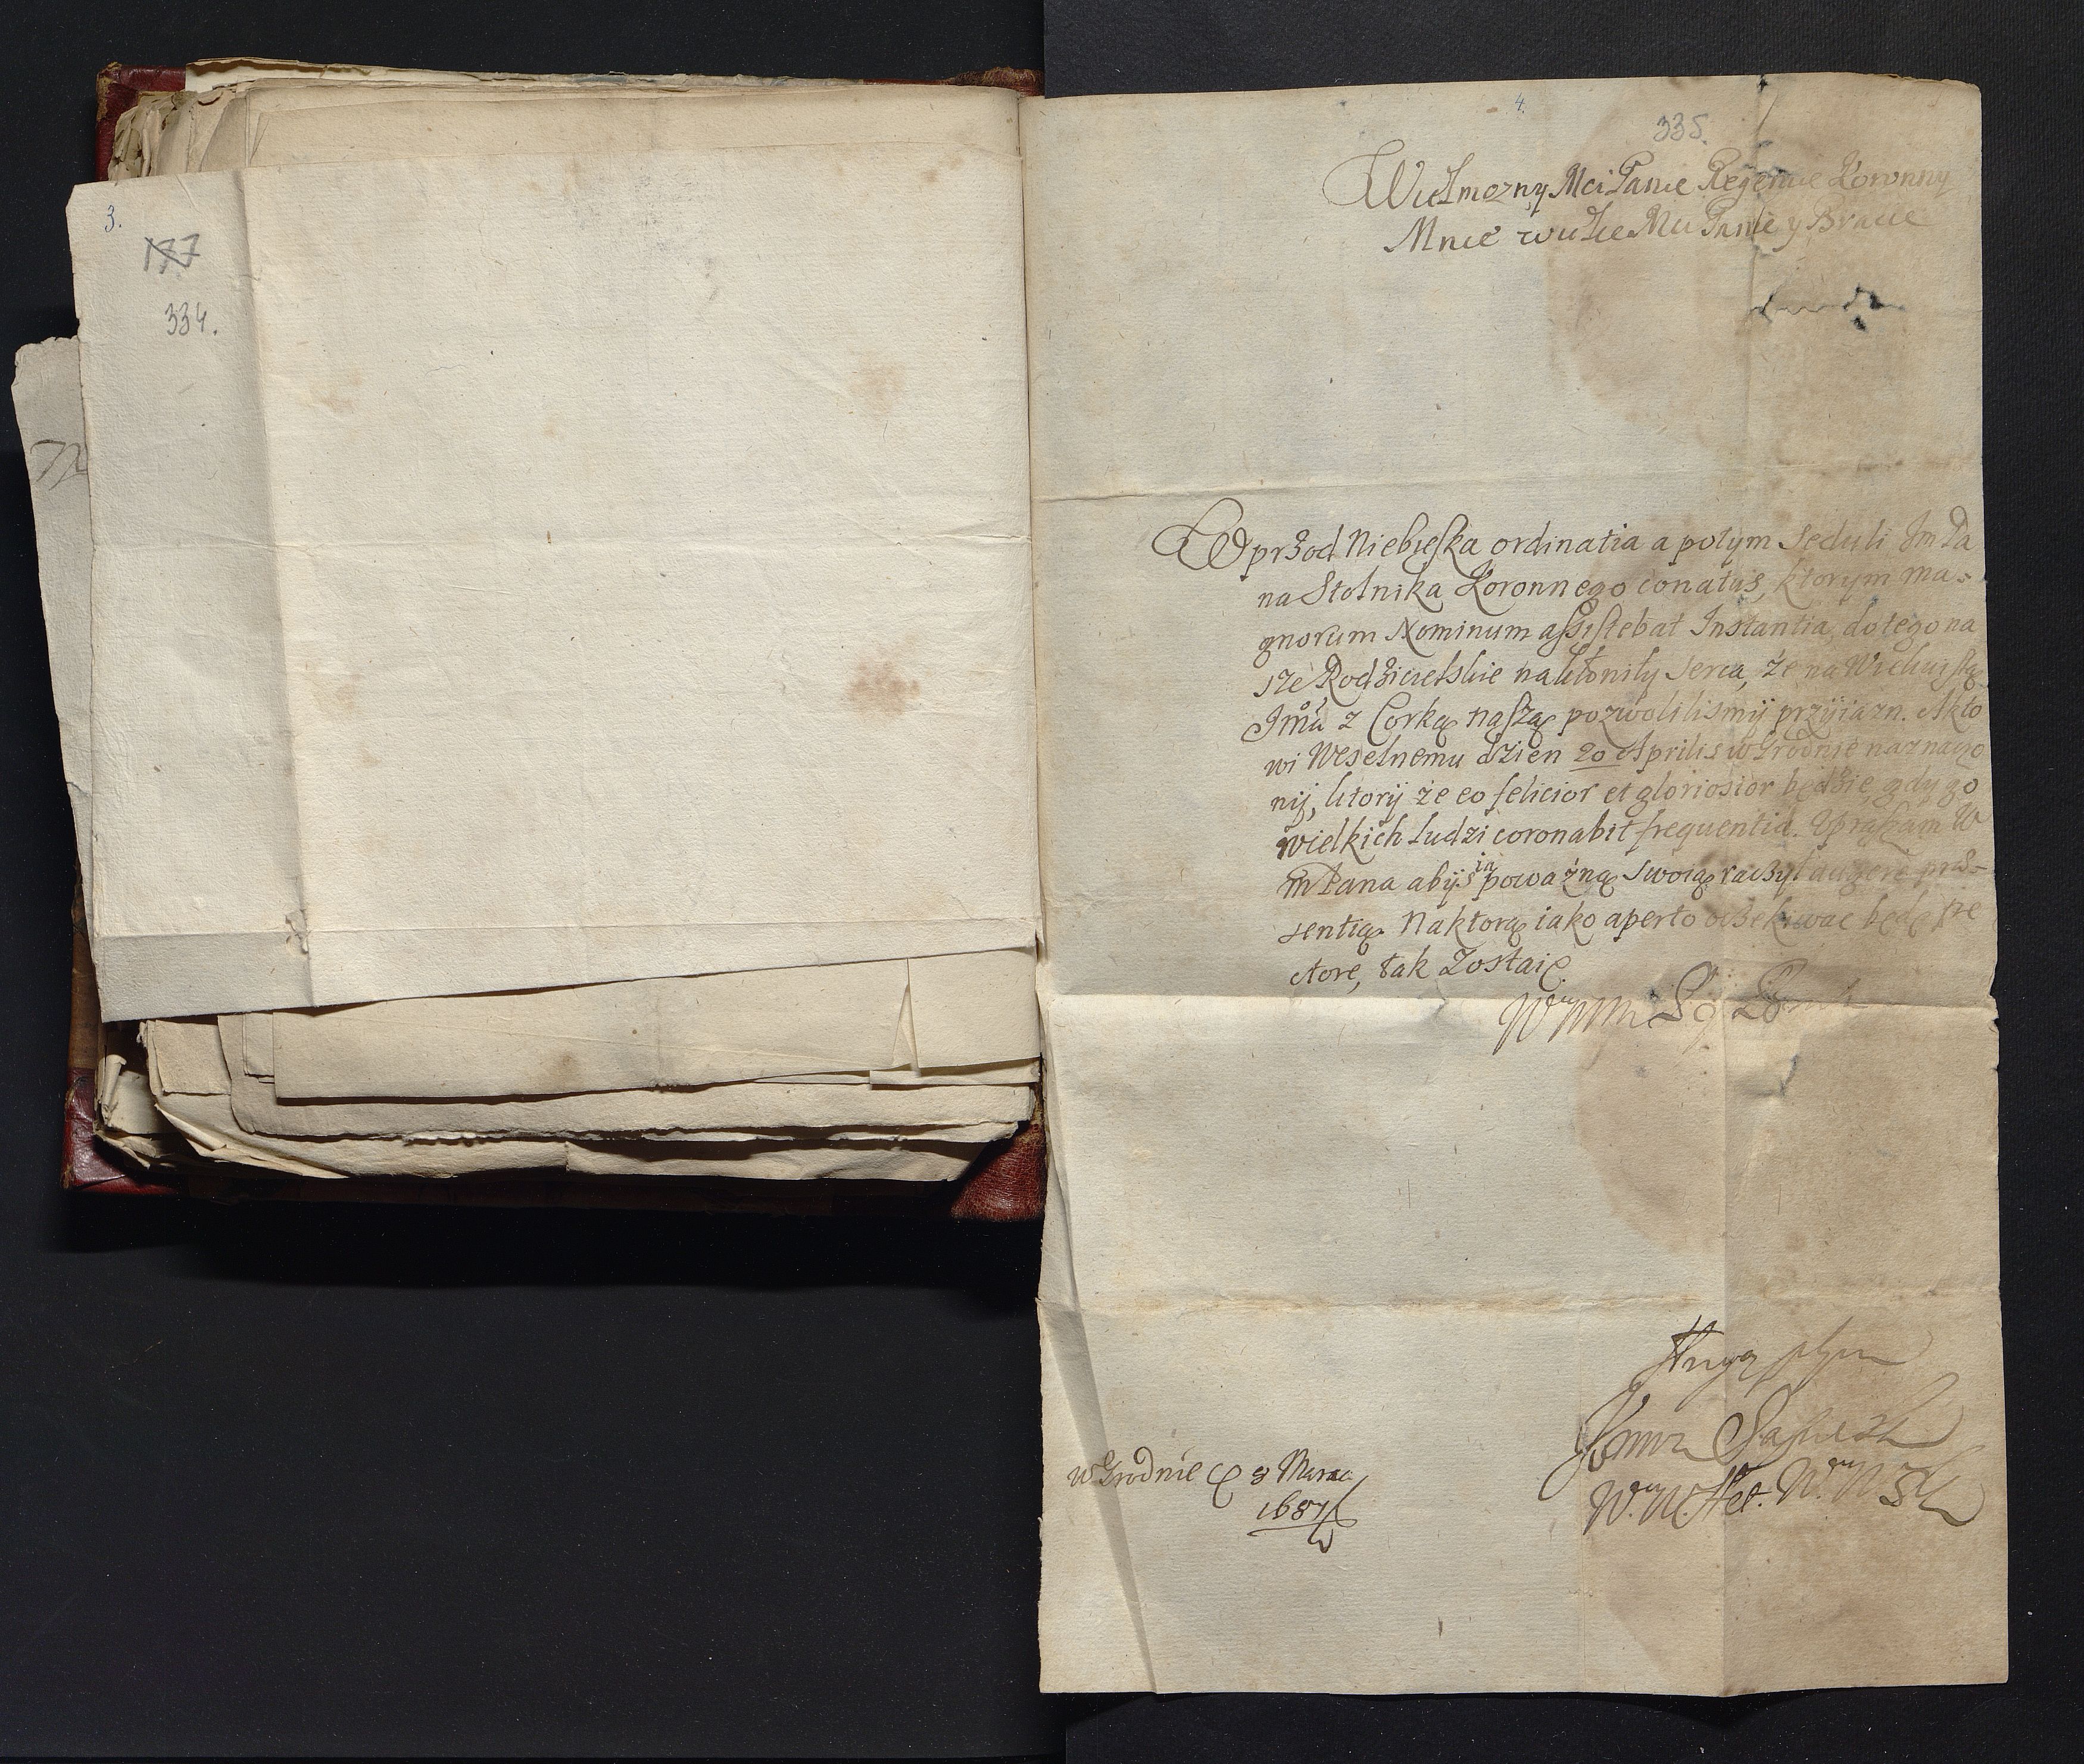 3.
177
334.
72
4.
335.
Wielmozny Mci Panie Regencie Koronny
Mnie wielce Mci Panie y Bracie
Wprzod Niebieska ordinatia a potym seduli Im Pa
na Stolnika Koronnego conatus, ktorym ma-
gnorum Nominum assistebat Instantia, do tego na
sze Rodzicielskie nakłoniły serca, że na Wiekuistą
Imći z Corką naszą pozwolilismÿ przÿiazn. Akto
wi Weselnemu dzien 20 Aprilis w Grodnie naznaczo
nÿ, ktorÿ że eo felicior et gloriosior będzie, gdy go
wielkich ludzi coronabit frequentia. Upraszam W
m Pana abÿś ią poważną swoią raczył augere præ-
sentią. Na ktorą iako aperto oczekiwac będę pe
ctore, tak zostaię
Wm Mm Pa
Sapieha
W. W. Het. W. X. L.
w Grodnie 8 Marca
1687